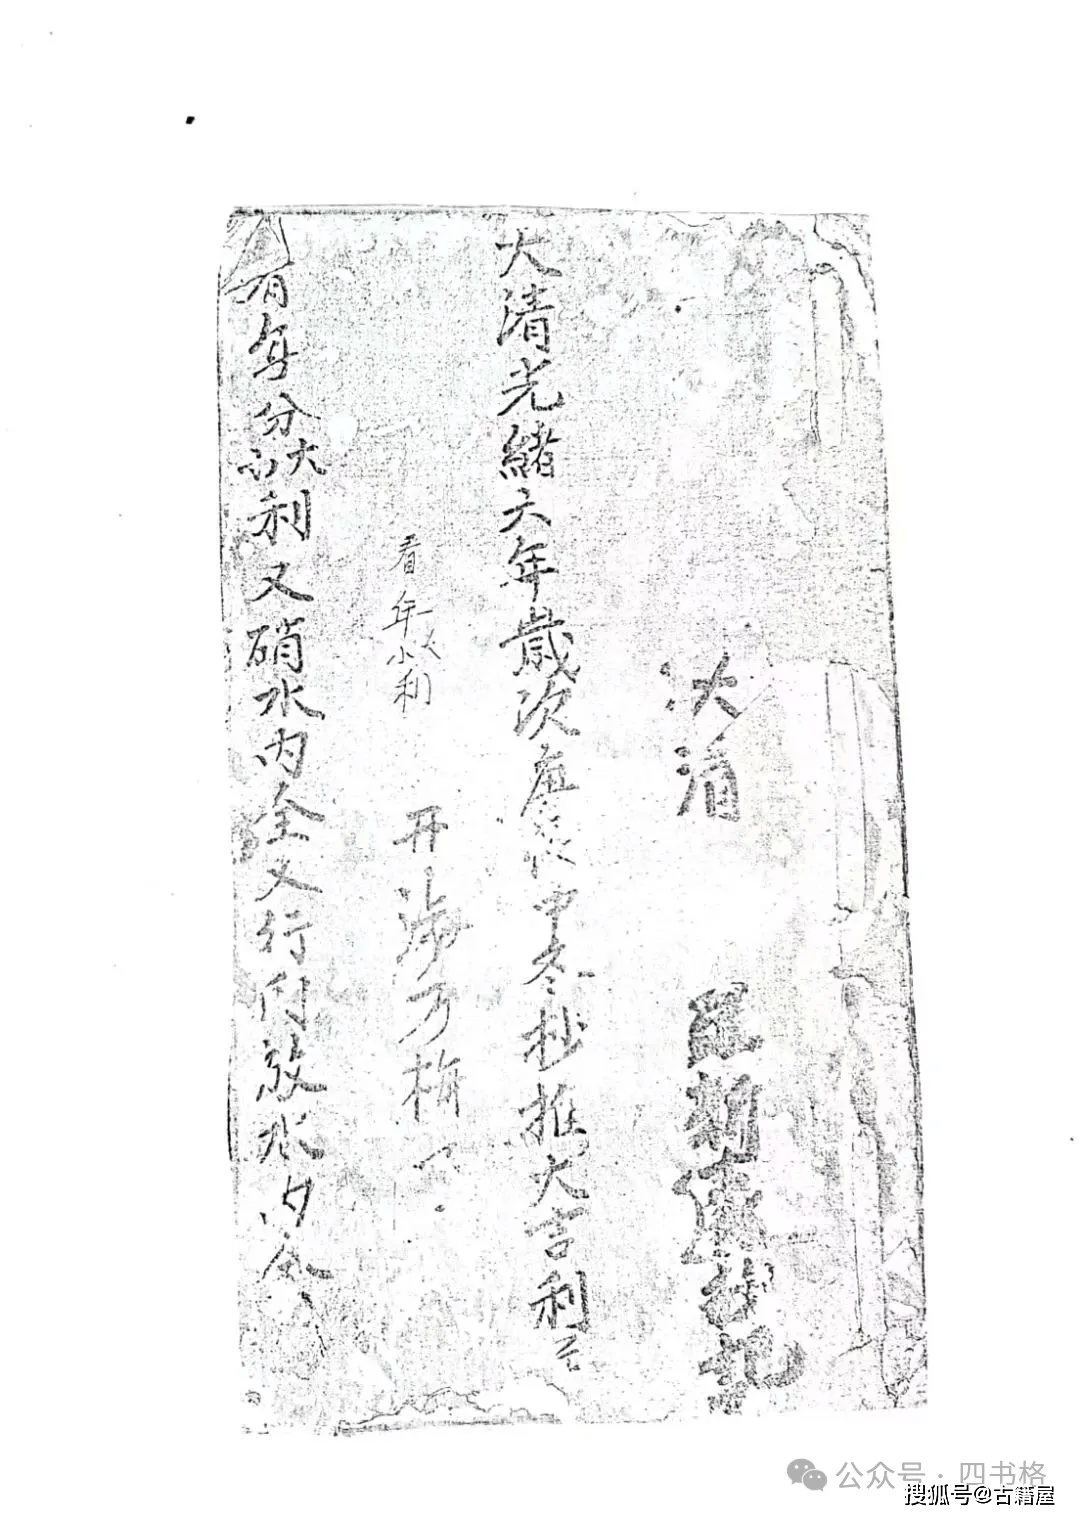 大清
抄記
大清光緒六年歲次庚辰中冬抄推大吉利
看年一大小利
开
有年分大小利又硝水内全又行向放水内全
公众号·四书格
搜狐号@古籍屋